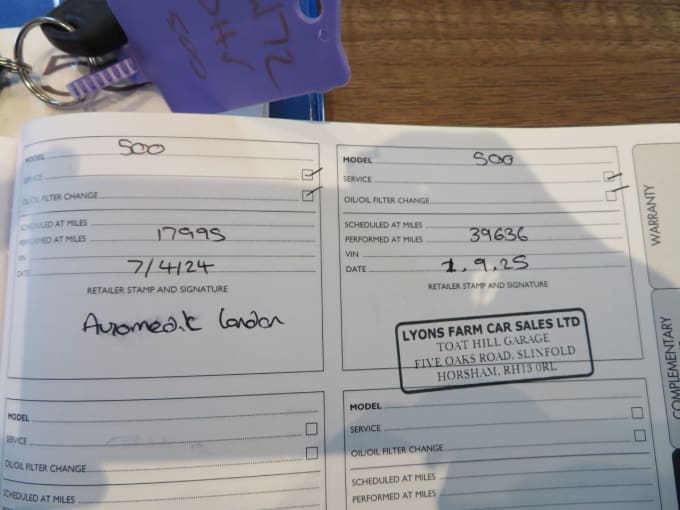 500
MODEL 500
SERVICE
OIL/OIL FILTER CHANGE
SCHEDULED AT MILES
PERFORMED AT MILES 17995
VIN
DATE 7/4/24
RETAILER STAMP AND SIGNATURE
Automedik London
MODEL 500
SERVICE
OIL/OIL FILTER CHANGE
SCHEDULED AT MILES
PERFORMED AT MILES 39636
VIN
DATE 1.9.25
RETAILER STAMP AND SIGNATURE
LYONS FARM CAR SALES LTD
TOAT HILL GARAGE
FIVE OAKS ROAD, SLINFOLD
HORSHAM, RH13 0RL
MODEL
SERVICE
OIL/OIL FILTER CHANGE
SCHEDULED AT MILES
PERFORMED AT MILES
MODEL
SERVICE
OIL/OIL FILTER CHANGE
SCHEDULED AT MILES
PERFORMED AT MILES
WARRANTY
COMPLEMENTARY